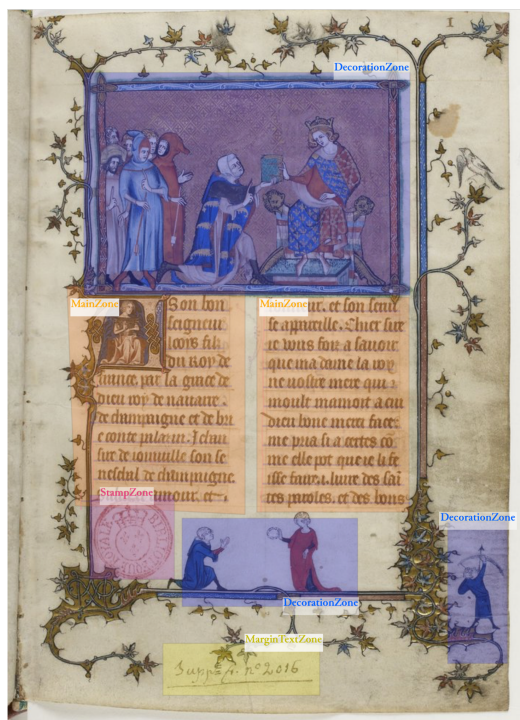 I
DecorationZone
MainZone
A Son bon
seigneur
looys filz
du Roy de
france, par la grace de
dieu roy de nauarre.
de champaigne et de bri
e conte palatin. Jehan
sire de ioinuille son se
neschal de champaigne.
amour, et
MainZone
et son
se apareille. Chier sire
ie vous foiz a sauoir
que ma dame la roy
ne vostre mere qui
moult mamoit a cui
dieu bone merci face.
me pria si a certes cõ
me elle pot que ie li fe
isse faire .i. liure des saĩ
tes paroles. et des bons
StampZone
DecorationZone
DecorationZone
MarginTextZone
Suppt. fr. n° 2016